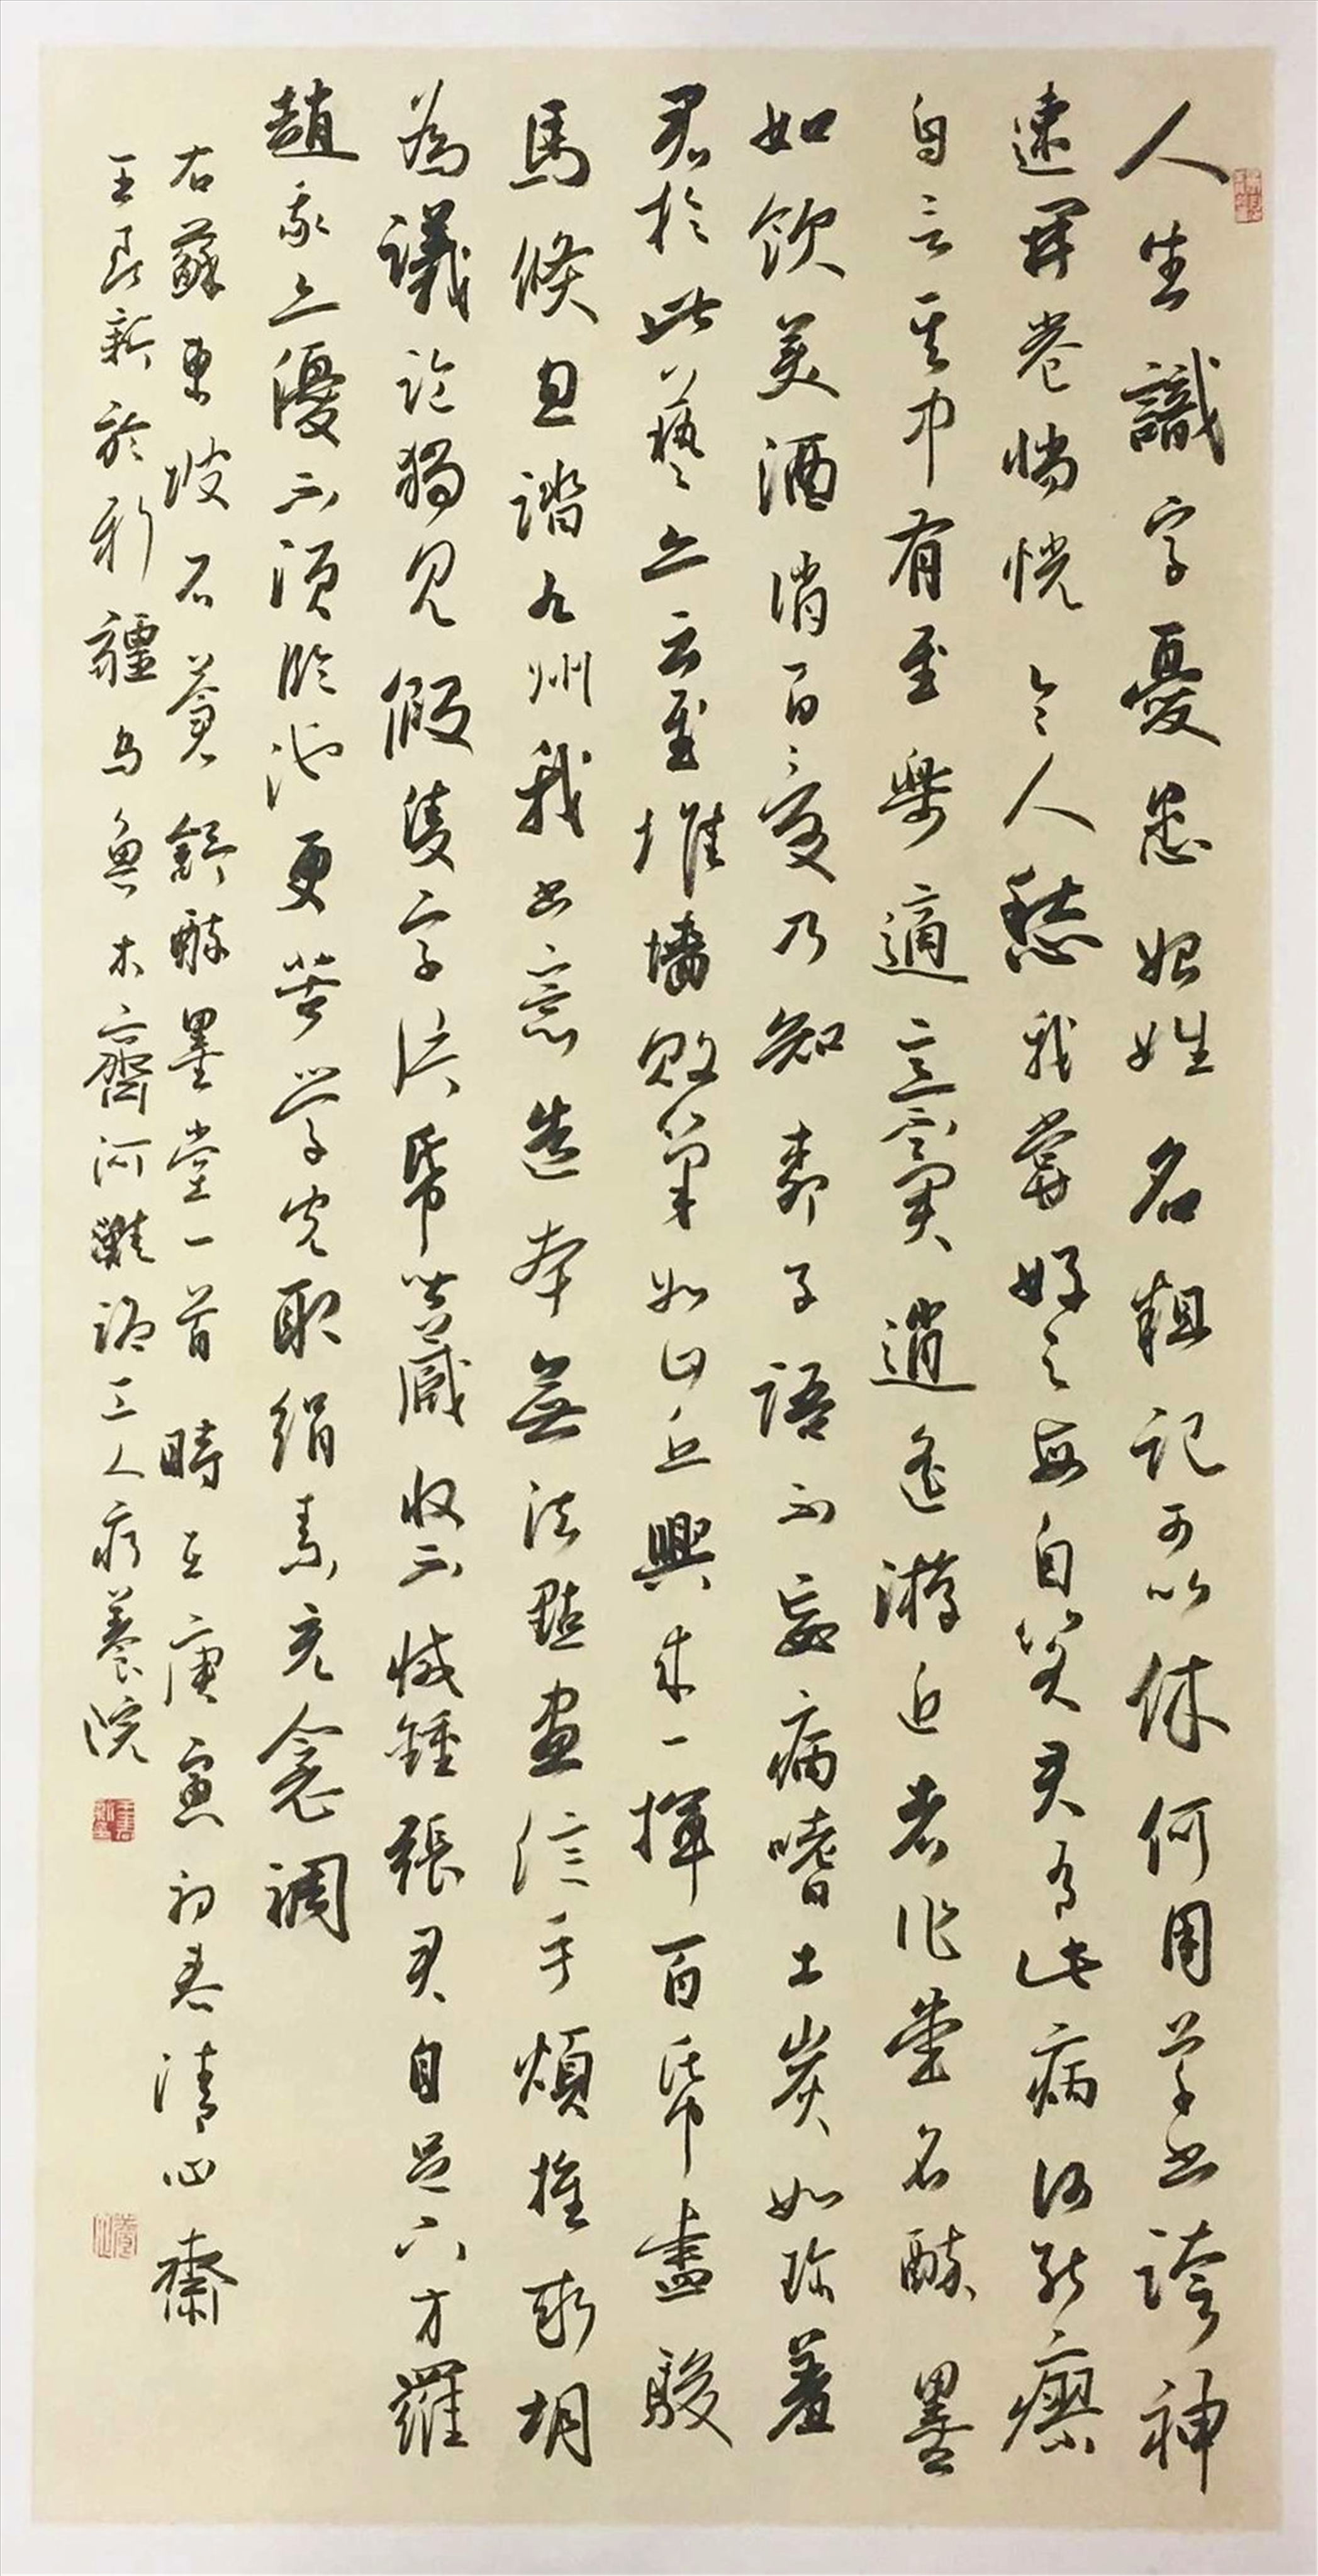 人生識字憂患始姓名粗記可以休何用草書誇神
速開卷惝恍令人愁我嘗好之每自笑君有此病何能瘳
自言其中有至樂適意無異逍遙游近者作堂名醉墨
如飲美酒消百憂乃知柳子語不妄病嗜土炭如珍羞
君於此藝亦云至堆墻敗筆如山丘興來一揮百紙盡駿
馬倏忽踏九州我書意造本無法點畫信手煩推求胡
為議論獨見假隻字片紙皆藏收不減鍾張君自足下方羅
趙我亦優不須臨池更苦學完取絹素充衾裯
右蘇東坡石蒼舒醉墨堂一首時在庚寅初春清心齋
王良新於新疆烏魚木齊河灘路工人療養院